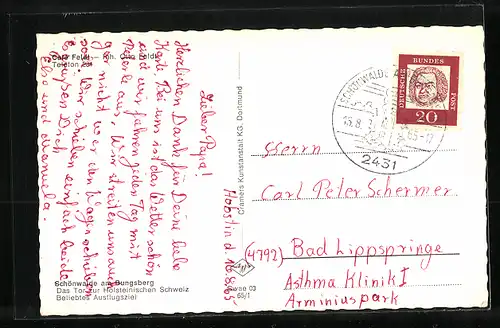 Café Feldt - Inh. Otto Feldt
Telefon 231
Lieber Papa!
Herzlichen Dank für Deine liebe
Karte. Bei uns ist das Wetter schön
und wir fahren jeden Tag mit
aus. Wir streiten uns auch
nicht wer den Wagen schieben
soll. Wir schieben einfach beide.
Es grüßen Dich
Else und Manuela.
Schönwalde am Bungsberg
Das Tor zur Holsteinischen Schweiz
Beliebtes Ausflugsziel
Hobstin d. 16.8.65
Cramers Kunstanstalt KG. Dortmund
03
65/1
SCHÖNWALDE
2431
DEUTSCHE BUNDES POST
20
Herrn
Carl Peter Schermer
(4792) Bad Lippspringe
Asthma Klinik I
Arminiuspark